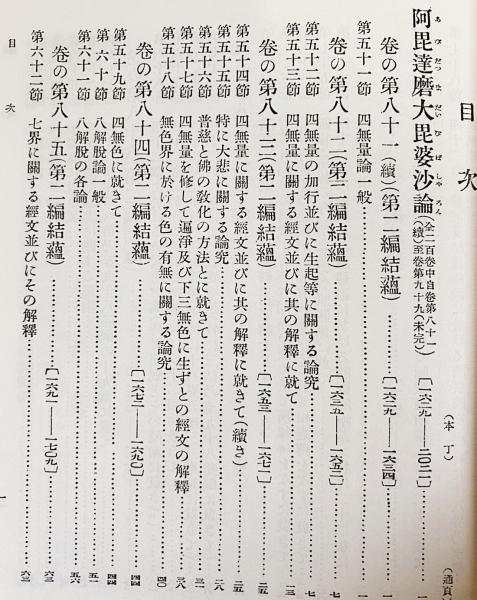 目次
阿毘達磨大毘婆沙論
あびだつまだいびばしやろん
全二百卷中自卷第八十一
(續)至卷第九十九(未完)
[一六二九——二〇二一]
(本丁)
(通頁
卷の第八十一(續)(第二編結蘊) [一六二九——一六三四] 一
第五十一節 四無量論一般 一
卷の第八十二(第二編結蘊) [一六三五——一六五二] 七
第五十二節 四無量の加行並びに生起等に關する論究 七
第五十三節 四無量に關する經文並びに其の解釋に就て 一三
卷の第八十三(第二編結蘊) [一六五三——一六七一] 二五
第五十四節 四無量に關する經文並びに其の解釋に就きて(續き) 二五
第五十五節 特に大悲に關する論究 二八
第五十六節 普慈と佛の敎化の方法とに就きて 三一
第五十七節 四無量を修して遍淨及び下三無色に生ずとの經文の解釋 三八
第五十八節 無色界に於ける色の有無に關する論究 四〇
卷の第八十四(第二編結蘊) [一六七二——一六九〇] 四四
第五十九節 四無色に就きて 四四
第六十節 八解脫論一般 五一
第六十一節 八解脫の各論 五六
卷の第八十五(第二編結蘊) [一六九一——一七〇九] 六三
第六十二節 七界に關する經文並びにその解釋 六三
目次
一